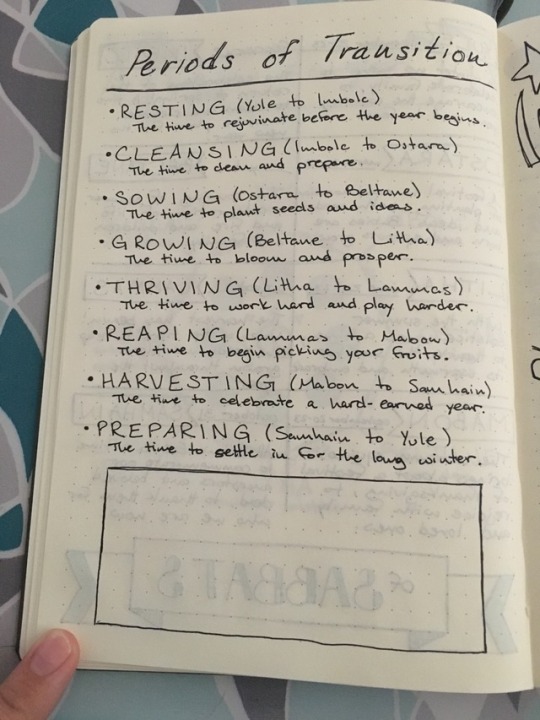 Periods of Transition
• RESTING (Yule to Imbolc)
The time to rejuvinate before the year begins.
• CLEANSING (Imbolc to Ostara)
The time to clean and prepare.
• SOWING (Ostara to Beltane)
The time to plant seeds and ideas.
• GROWING (Beltane to Litha)
The time to bloom and prosper.
• THRIVING (Litha to Lammas)
The time to work hard and play harder.
• REAPING (Lammas to Mabon)
The time to begin picking your fruits.
• HARVESTING (Mabon to Samhain)
The time to celebrate a hard-earned year.
• PREPARING (Samhain to Yule)
The time to settle in for the long winter.
SABBATS